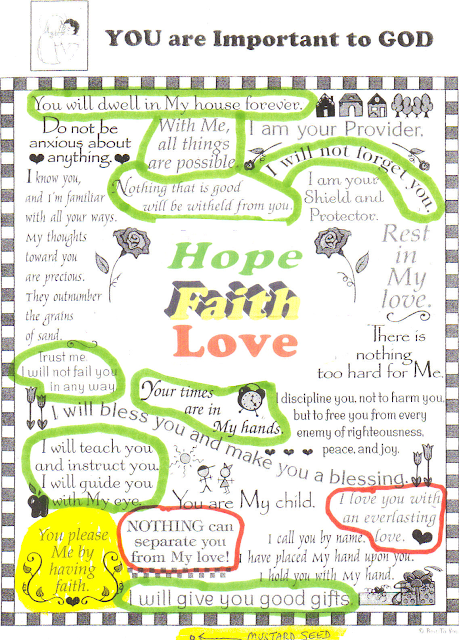 YOU are Important to GOD
You will dwell in My house forever.
Do not be
anxious about
anything.
With Me,
all things
are possible
I am your Provider.
I will not forget you.
I know you,
and I'm familiar
with all your ways.
My thoughts
toward you
are precious.
They outnumber
the grains
of sand.
Nothing that is good
will be witheld from you.
I am your
Shield and
Protector.
Rest
in
My
love.
Hope
Faith
Love
There is
nothing
too hard for Me.
Trust me.
I will not fail you
in any way.
Your times
are in
My hands.
I discipline you, not to harm you,
but to free you from every
enemy of righteousness,
peace, and joy.
I will bless you and make you a blessing.
I will teach you
and instruct you.
I will guide you
with My eye.
You are My child.
I love you with
an everlasting
love.
You please
Me by
having
faith.
NOTHING can
separate you
from My love!
I call you by name.
I have placed My hand upon you.
I hold you with My hand.
I will give you good gifts.
MUSTARD SEED